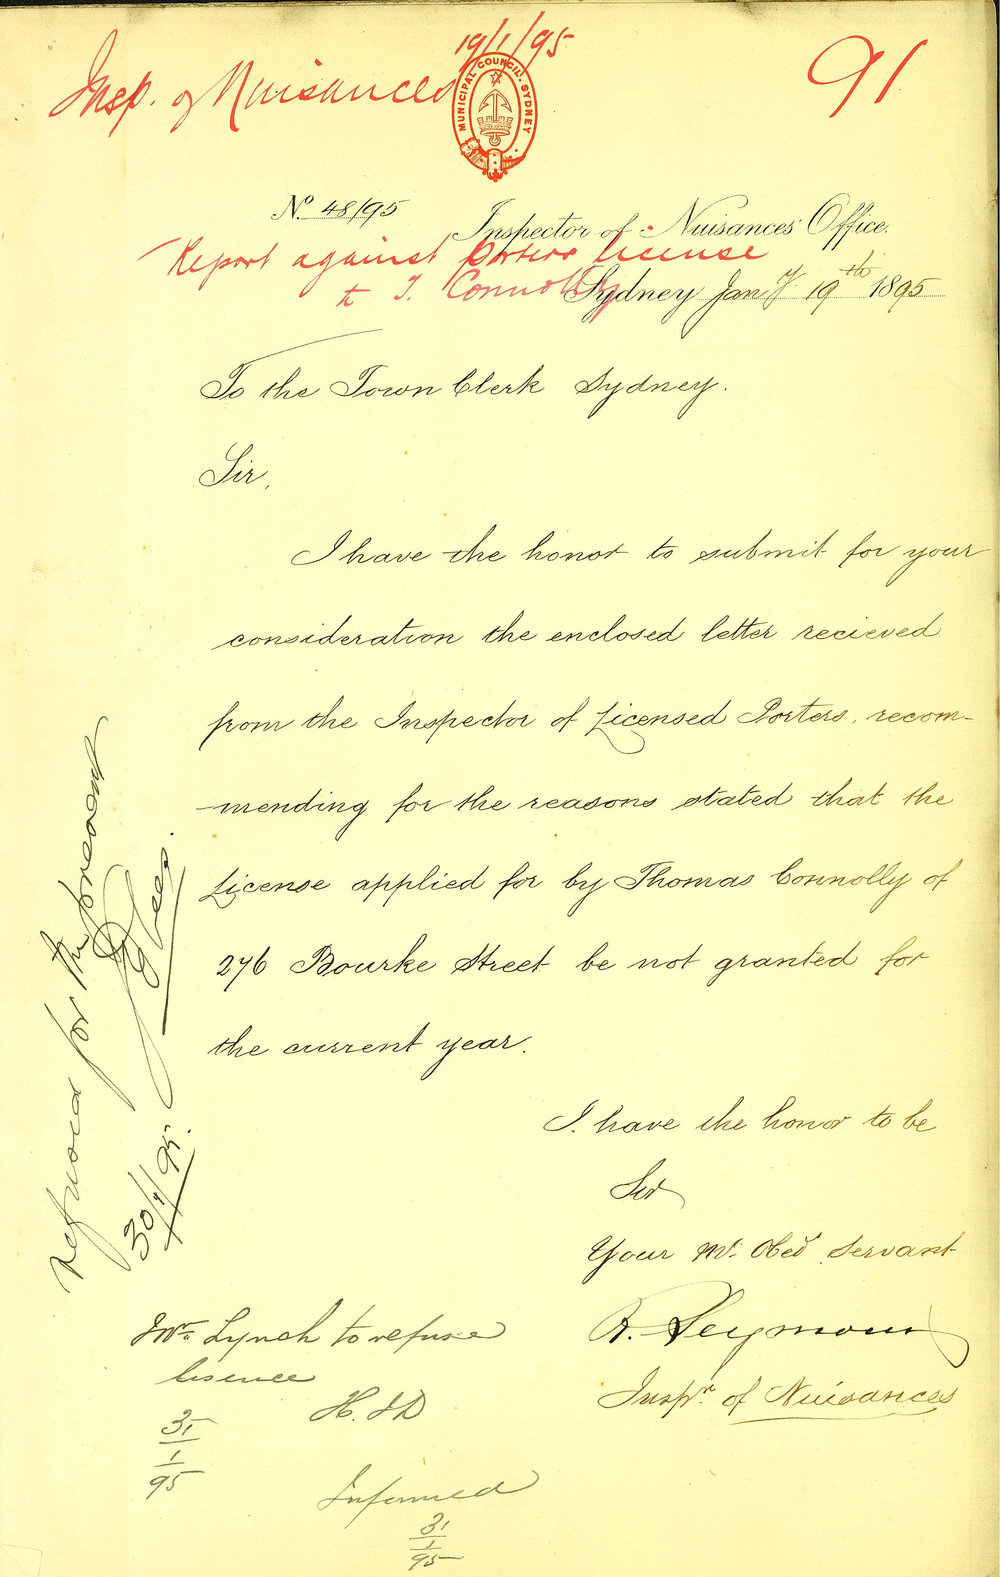 19/1/95
Insp. of Nuisances
91
MUNICIPAL COUNCIL. SYDNEY.
No. 48/95
Inspector of Nuisances Office.
Report against Porters license
to T. Connolly
Sydney Jany. 19th 1895
To the Town Clerk Sydney.
Sir,
I have the honor to submit for your
consideration the enclosed letter recieved
from the Inspector of Licensed Porters, recom-
-mending for the reasons stated that the
License applied for by Thomas Connolly of
276 Bourke Street be not granted for
the current year.
I have the honor to be
Sir
Your Mt. Obed Servant
R. Seymour
Inspr. of Nuisances
Refused for the present
Lees.
30/1/95.
Lynch to refuse
lisence
31
1
95
Informed
31
1
95